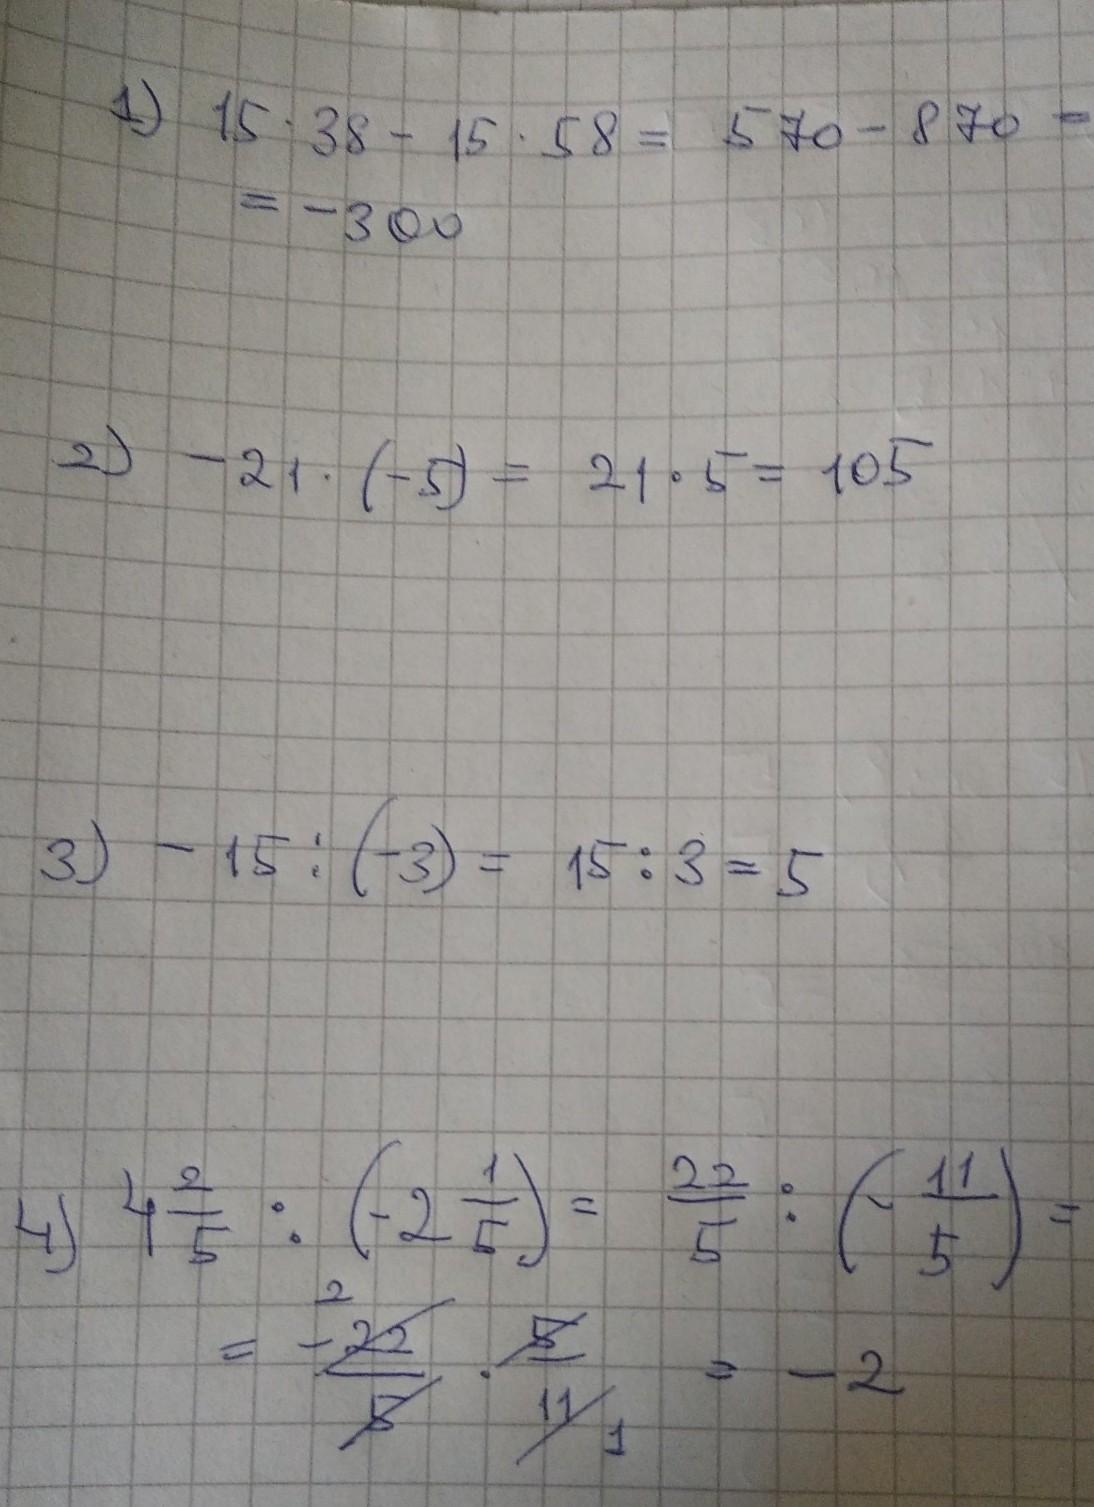 1) 15 · 38 - 15 · 58 = 570 - 870 =
= - 300
2) - 21 · (-5) = 21 · 5 = 105
3) - 15 : (-3) = 15 : 3 = 5
4) 4 2/5 : (-2 1/5) = 22/5 : (- 11/5) =
2
= - 22/5 · 5/11 = - 2
1